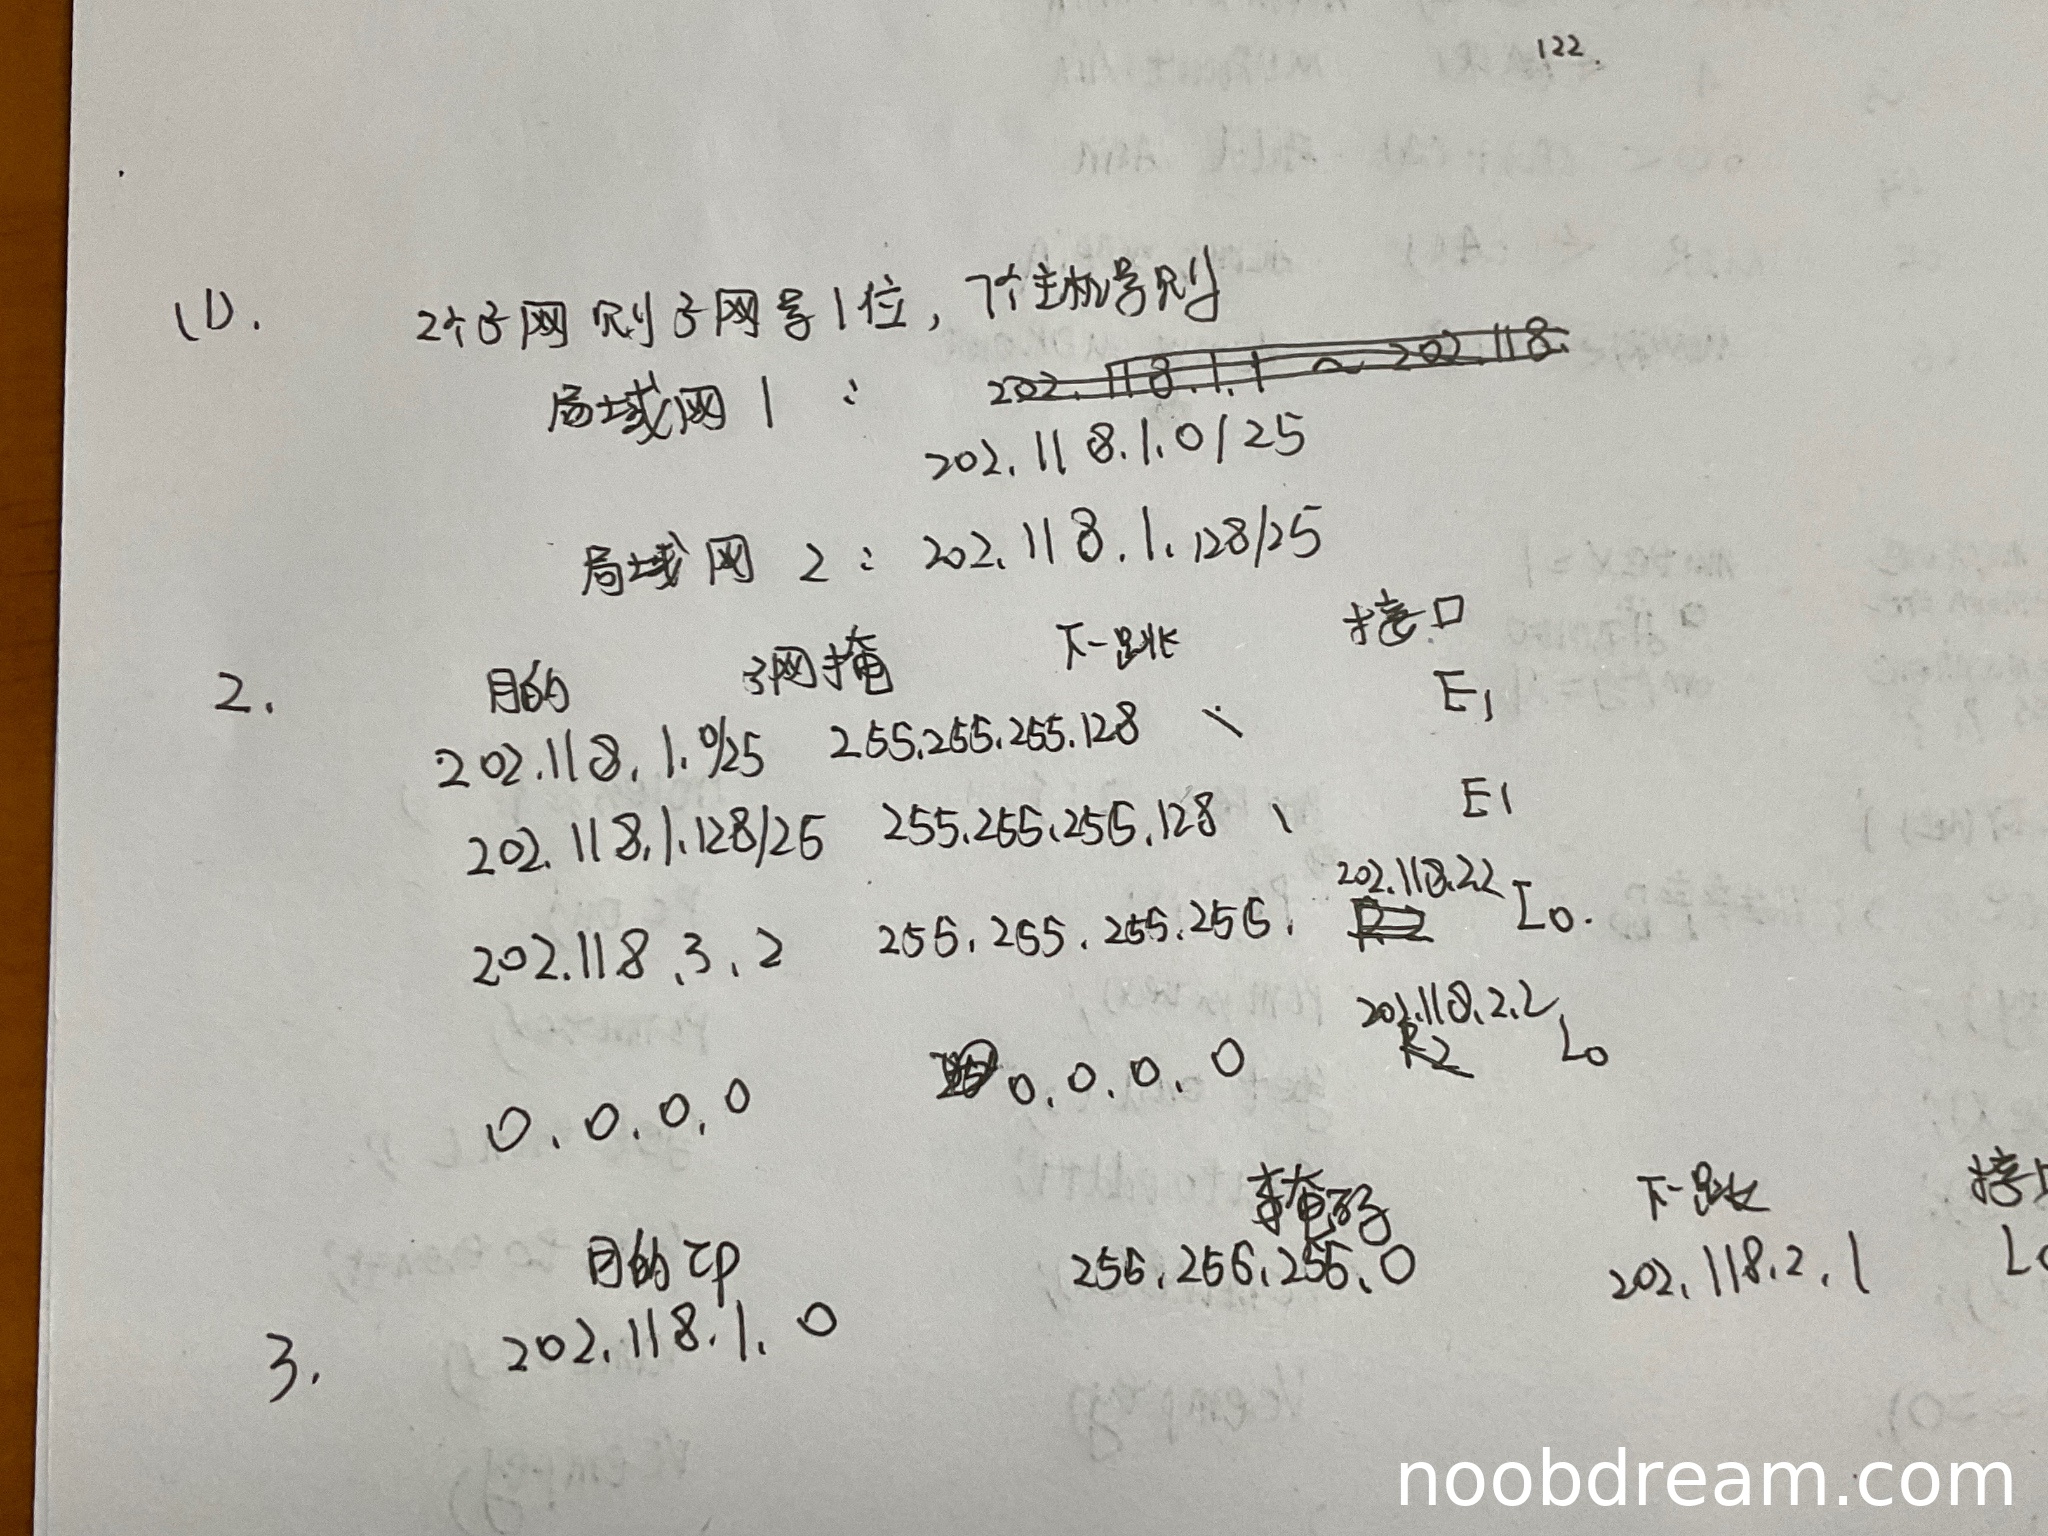 122.
(1). 2个子网则子网号1位，7个主机号则
局域网1： 202.118.1.1 ~ 202.118.
202.118.1.0/25
局域网2：202.118.1.128/25
2. 目的 子网掩 下一跳 接口
202.118.1.0/25 255.255.255.128 \ E1
202.118.1.128/25 255.255.255.128 \ E1
202.118.3.2 255.255.255.255. R2 202.118.22 L0.
0.0.0.0 0.0.0.0 R2 202.118.2.2 L0
3. 目的IP 掩码 下一跳 接口
202.118.1.0 255.255.255.0 202.118.2.1 L0
noobdream.com